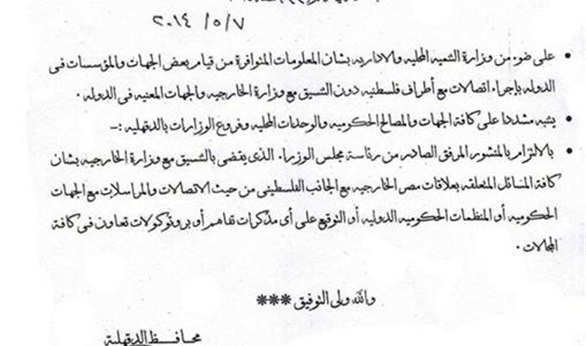 ٢٠١٤/٥/٧
• على ضوء من وزارة التنمية المحلية والادارية بشان المعلومات المتوافرة من قيام بعض الجهات والمؤسسات فى
الدوله بإجراء اتصالات مع أطراف فلسطينيه دون التنسيق مع وزارة الخارجيه والجهات المعنيه فى الدوله .
• ينبه مشددا على كافة الجهات والمصالح الحكوميه والوحدات المحليه وفروع الوزارات بالدقهلية :-
• بالالتزام بالمنشور المرفق الصادر من رئاسة مجلس الوزراء الذى يقضى بالتنسيق مع وزارة الخارجيه بشان
كافة المسائل المتعلقه بعلاقات مصر الخارجيه مع الجانب الفلسطينى من حيث الاتصالات والمراسلات مع الجهات
الحكوميه أو المنظمات الحكوميه الدوليه أو التوقيع على أى مذكرات تفاهم أو بروتوكولات تعاون فى كافة
المجالات .
والله ولى التوفيق ***
محافظ الدقهلية